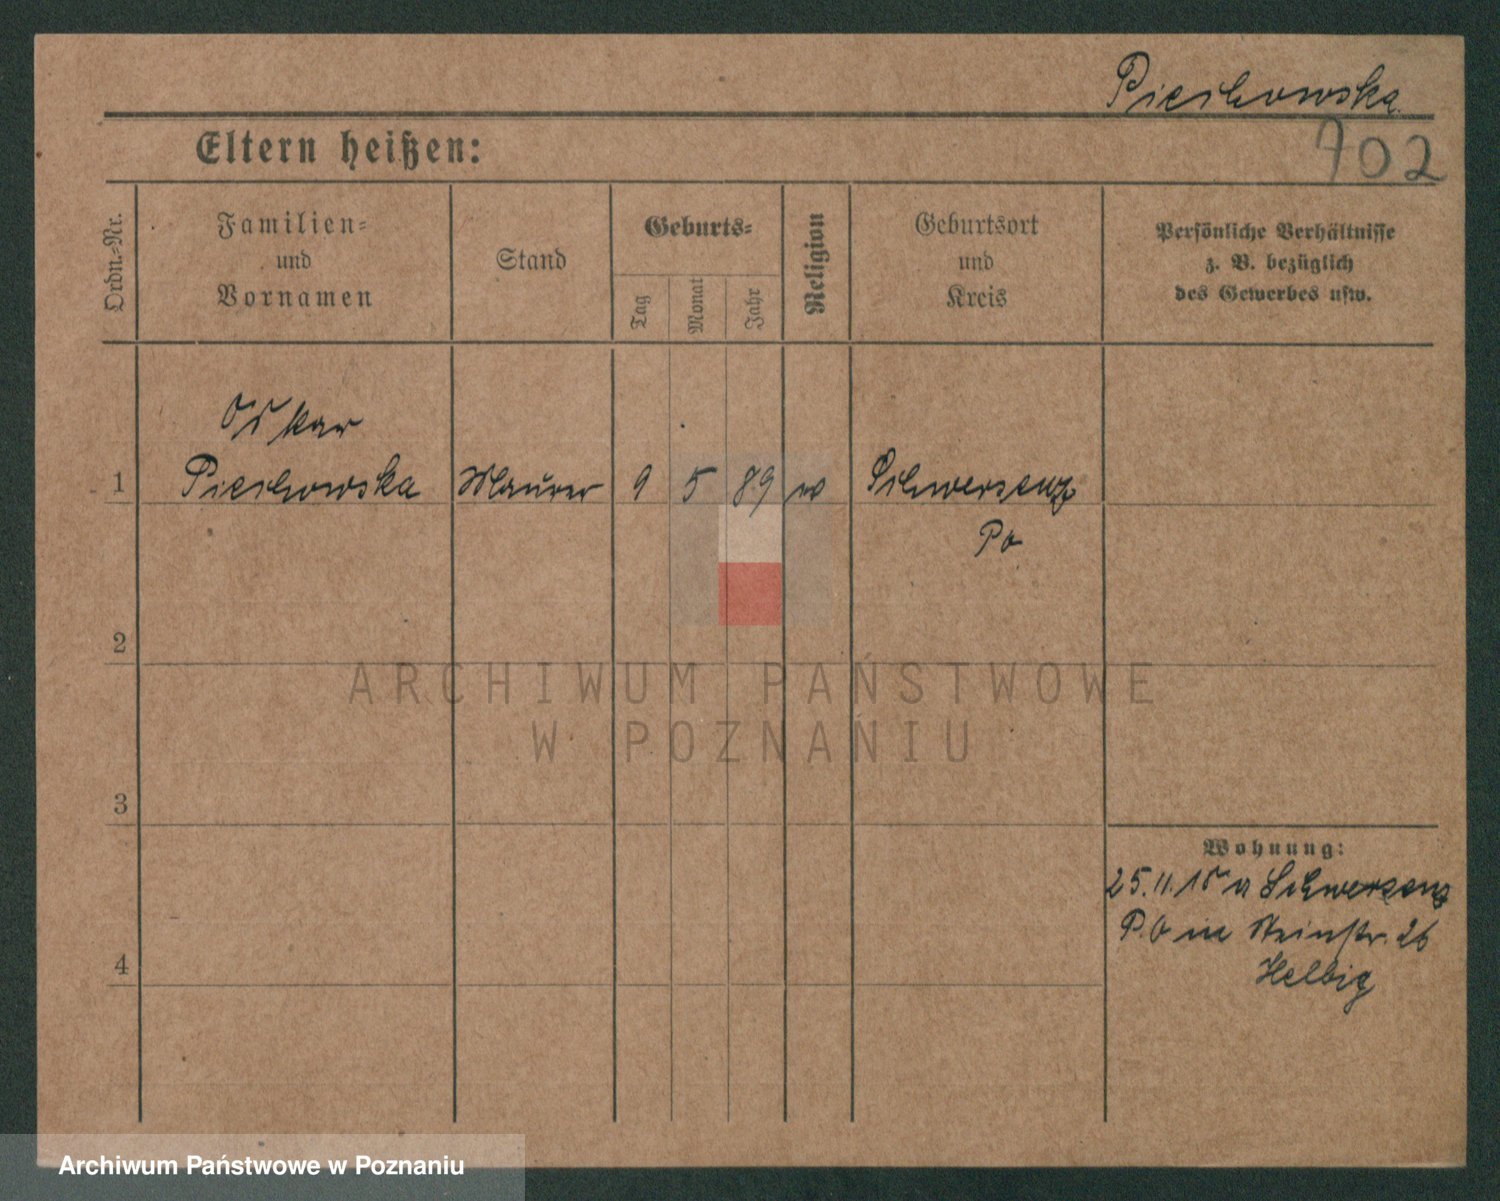 Piechowska
702
Eltern heißen:
Ordn.-Nr.
Familien-
und
Vornamen
Stand
Geburts-
Tag
Monat
Jahr
Religion
Geburtsort
und
Kreis
Persönliche Verhältnisse
z. B. bezüglich
des Gewerbes usw.
Oskar
1 Piechowska Maurer 9 5 89 Schwersenz
Po
2
ARCHIWUM PAŃSTWOWE
W POZNANIU
3
Wohnung:
25.11.15 Schwersenz
P.O. Steinstr. 26
4
Helbig
Archiwum Państwowe w Poznaniu